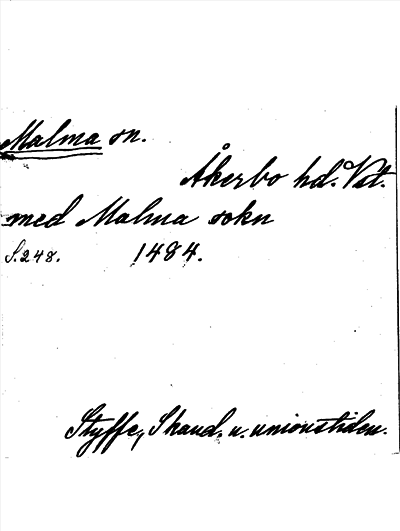 Malma sn.
Åkerbo hd. Vst.
med Malma sokn
S. 248. 1484.
Styffe, Skand. u. unionstiden.